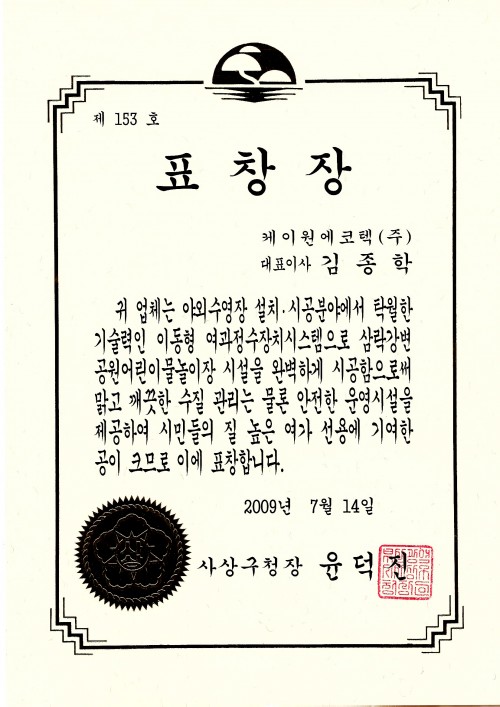 제 153 호
표 창 장
케이원에코텍(주)
대표이사 김 종 학
귀 업체는 야외수영장 설치·시공분야에서 탁월한
기술력인 이동형 여과정수장치시스템으로 삼락강변
공원어린이물놀이장 시설을 완벽하게 시공함으로써
맑고 깨끗한 수질 관리는 물론 안전한 운영시설을
제공하여 시민들의 질 높은 여가 선용에 기여한
공이 크므로 이에 표창합니다.
2009년 7월 14일
사상구청장 윤 덕 진